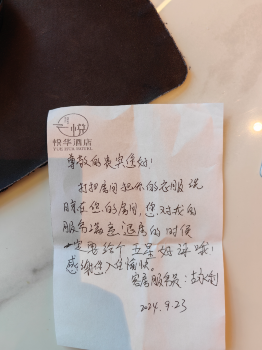 悦华酒店
YUE HUA HOTEL
尊敬的贵宾您好!
打扫房间把你的衣服洗
晾在您的房间,您对我的
服务满意退房的时候
一定要给个五星好评哦!
感谢您入住愉快。
客房服务员:
2024.9.23